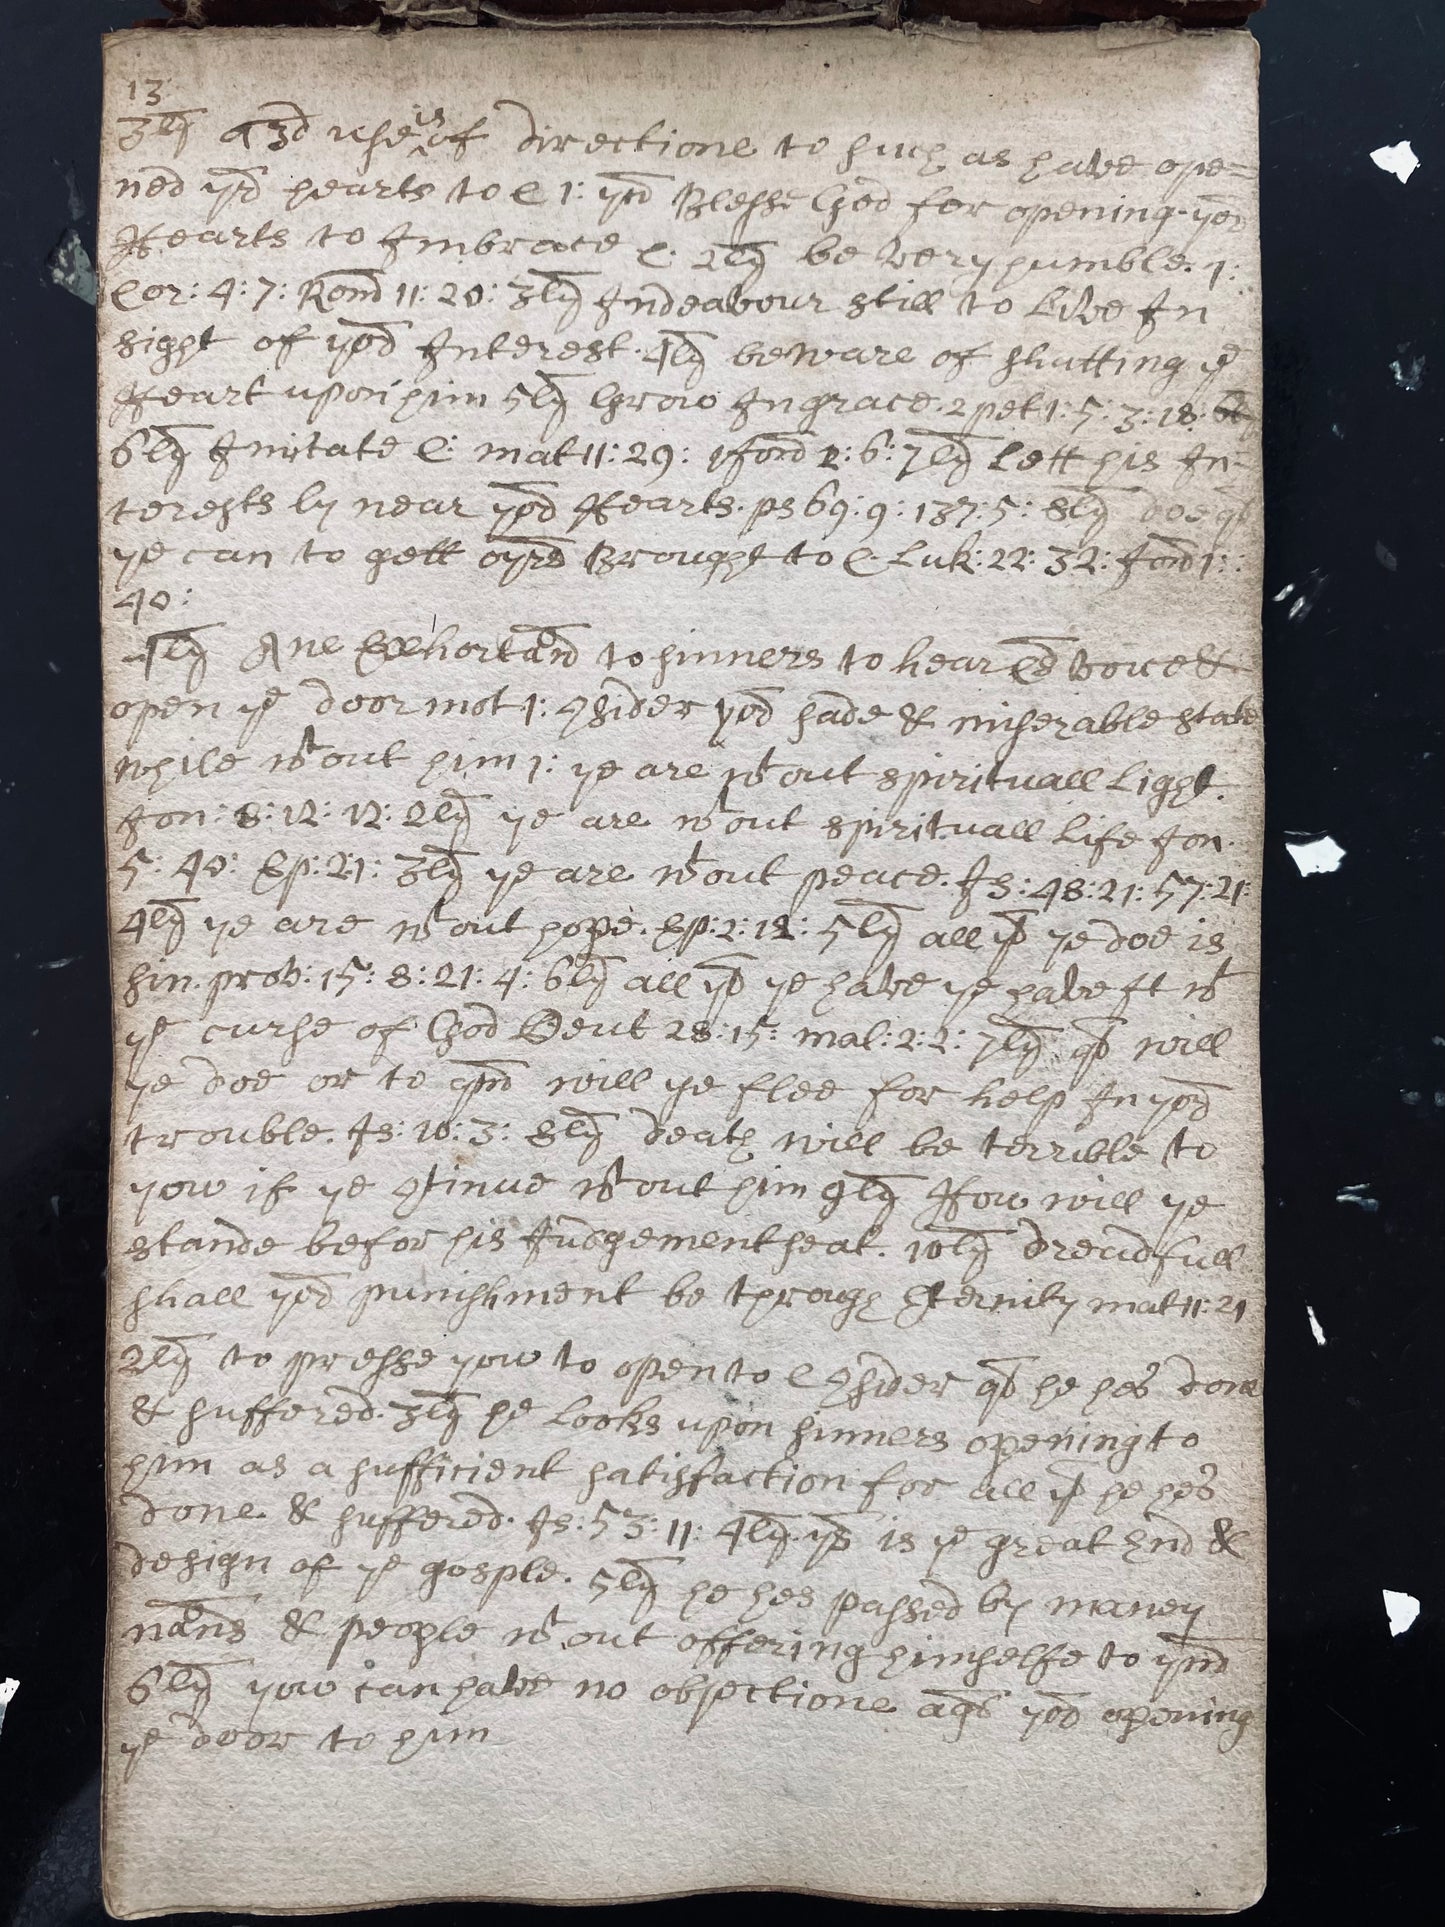 13
3ly a 3d use is of directione to such as have ope=
ned yr hearts to C 1: yn Blesse God for opening yor
Hearts to Imbrace C. 2ly be very humble. 1:
Cor: 4: 7: Rom 11: 20: 3ly Indeavour still to Live In
sight of yor Interest. 4ly beware of shutting ye
Heart upon him 5ly Grow In grace. 2 pet 1: 5: 3: 18:
6ly Imitate C: mat 11: 29: 1 Jon 2: 6: 7ly Lett his In-
terests ly near yor Hearts. ps 69: 9: 137: 5: 8ly doe qt
ye can to gett oyrs Brought to C. Luk: 22: 32: Jon 1:
40:
4ly Ane Exhortan to sinners to hear Cs voice &
open ye door mot 1: 9sider yor sade & miserable state
while wtout him 1: ye are wtout spirituall Light.
Jon: 8: 12: 12: 2ly ye are wtout spirituall Life Jon
5: 40: Ep: 2: 1: 3ly ye are wtout peace. Is: 48: 21: 57: 21:
4ly ye are wtout hope. Ep: 2: 12: 5ly all yt ye doe is
sin. prov: 15: 8: 21: 4: 6ly all yt ye have ye have It wt
ye curse of God Deut 28: 15: mal: 2: 2: 7ly qt will
ye doe or to qm will ye flee for help In yor
trouble. Is: 10: 3: 8ly death will be terrible to
yow if ye 9tinue wtout him 9ly How will ye
stande befor his Judgement seat. 10ly dreadfull
shall yor punishment be through Eternity mat 11: 21
2ly to presse yow to open to C 9sider qt he hes done
& suffered. 3ly he Looks upon sinners opening to
him as a sufficient satisfaction for all yt he hes
done & suffered. Is: 53: 11: 4ly. ys is ye great End &
design of ye gosple. 5ly he hes passed by maney
naons & people wtout offering himselfe to ym
6ly yow can have no objectione agt yor opening
ye door to him